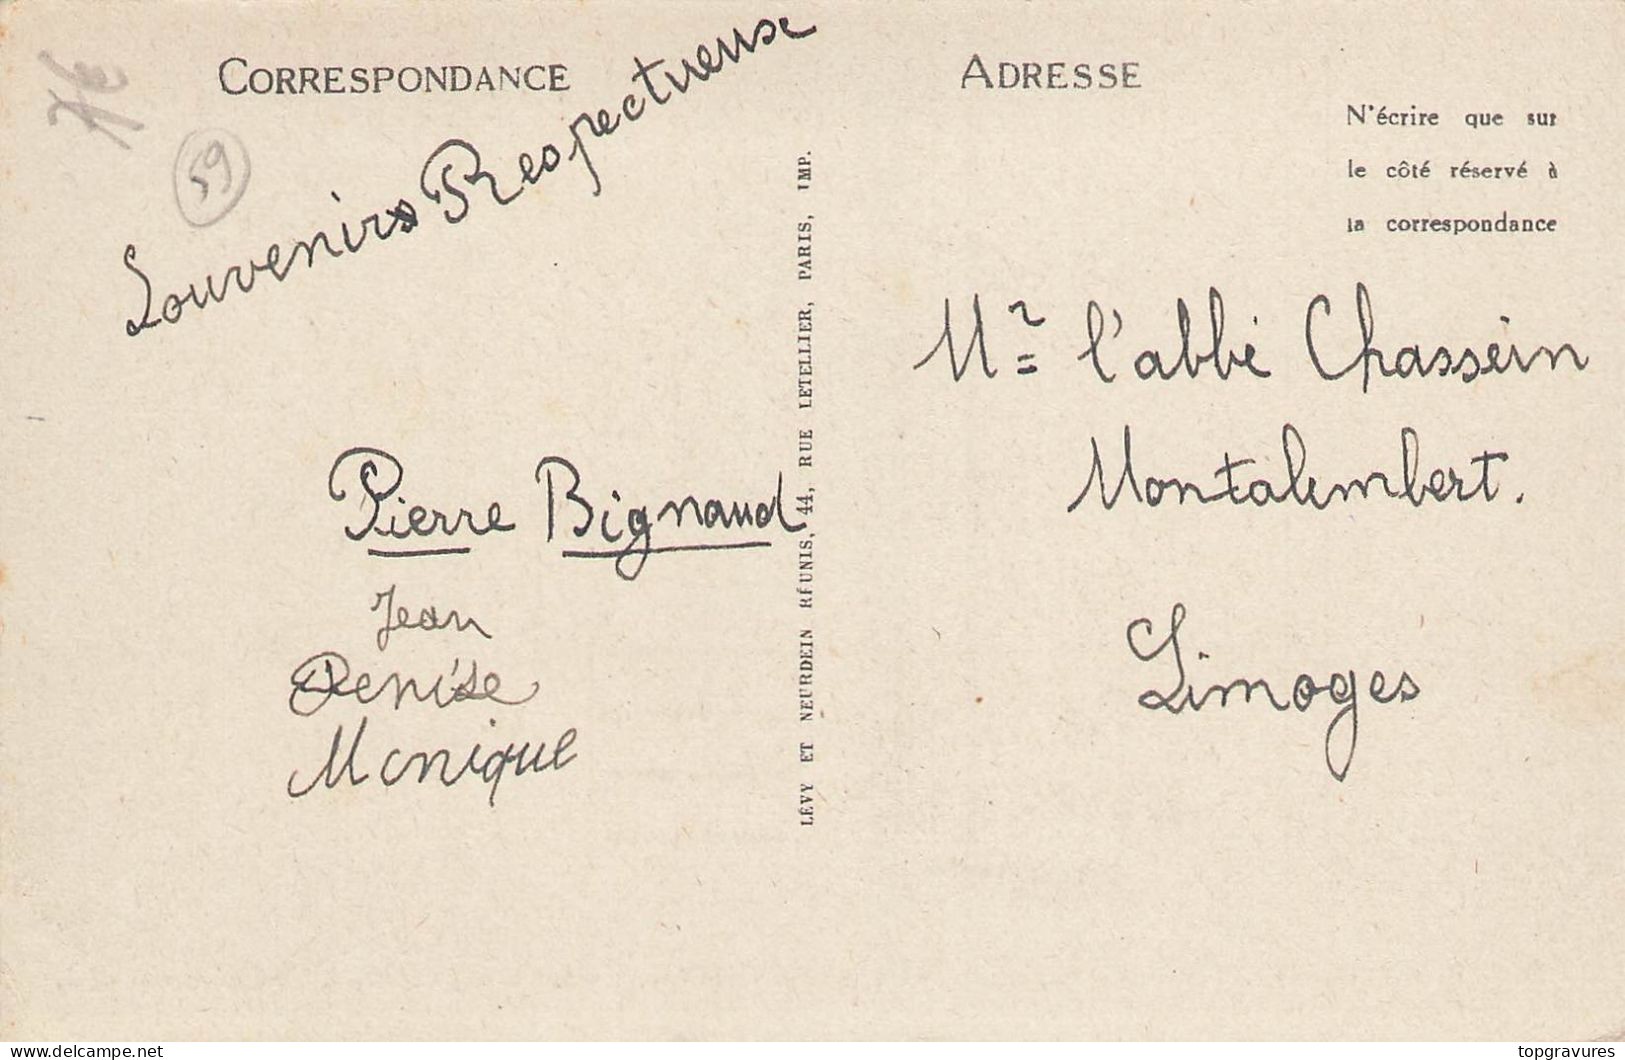 CORRESPONDANCE
59
Souvenirs Respectueuse
Pierre Bignaud
Jean
Denise
Monique
LÉVY ET NEURDEIN RÉUNIS, 44, RUE LETELLIER, PARIS, IMP.
ADRESSE
N'écrire que sur
le côté réservé à
la correspondance
Mr l'abbé Chassein
Montalembert.
Limoges
www.delcampe.net
topgravures